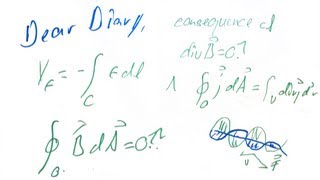 Dear Diary,
consequence of
div B⃗ = 0?
V_E = -∫_C E dl
1 ∮_O j⃗ dA⃗ = ∫_V div j⃗ dv
∮_O. B⃗ dA⃗ = 0??
v